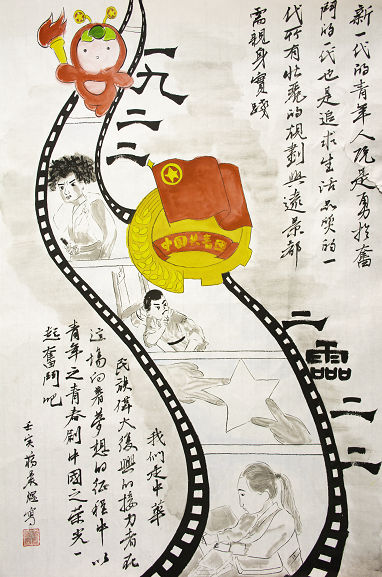 一九二二
新一代的青年人既是勇於奮
鬥的一代也是追求生活品質的一
代所有壯麗的規劃與遠景都
需親身實踐
中国共青团
二零二二
我們是中華
民族偉大復興的接力者在
這場向著夢想的征程中以
青年之青春創中國之榮光一
起奮鬥吧
壬寅楊寫